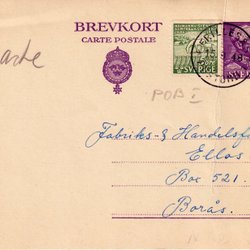 BREVKORT
CARTE POSTALE
arte
SVERIGE
POB I
Fabriks- & Handelsfa
Ellos
Box 521.
Borås.